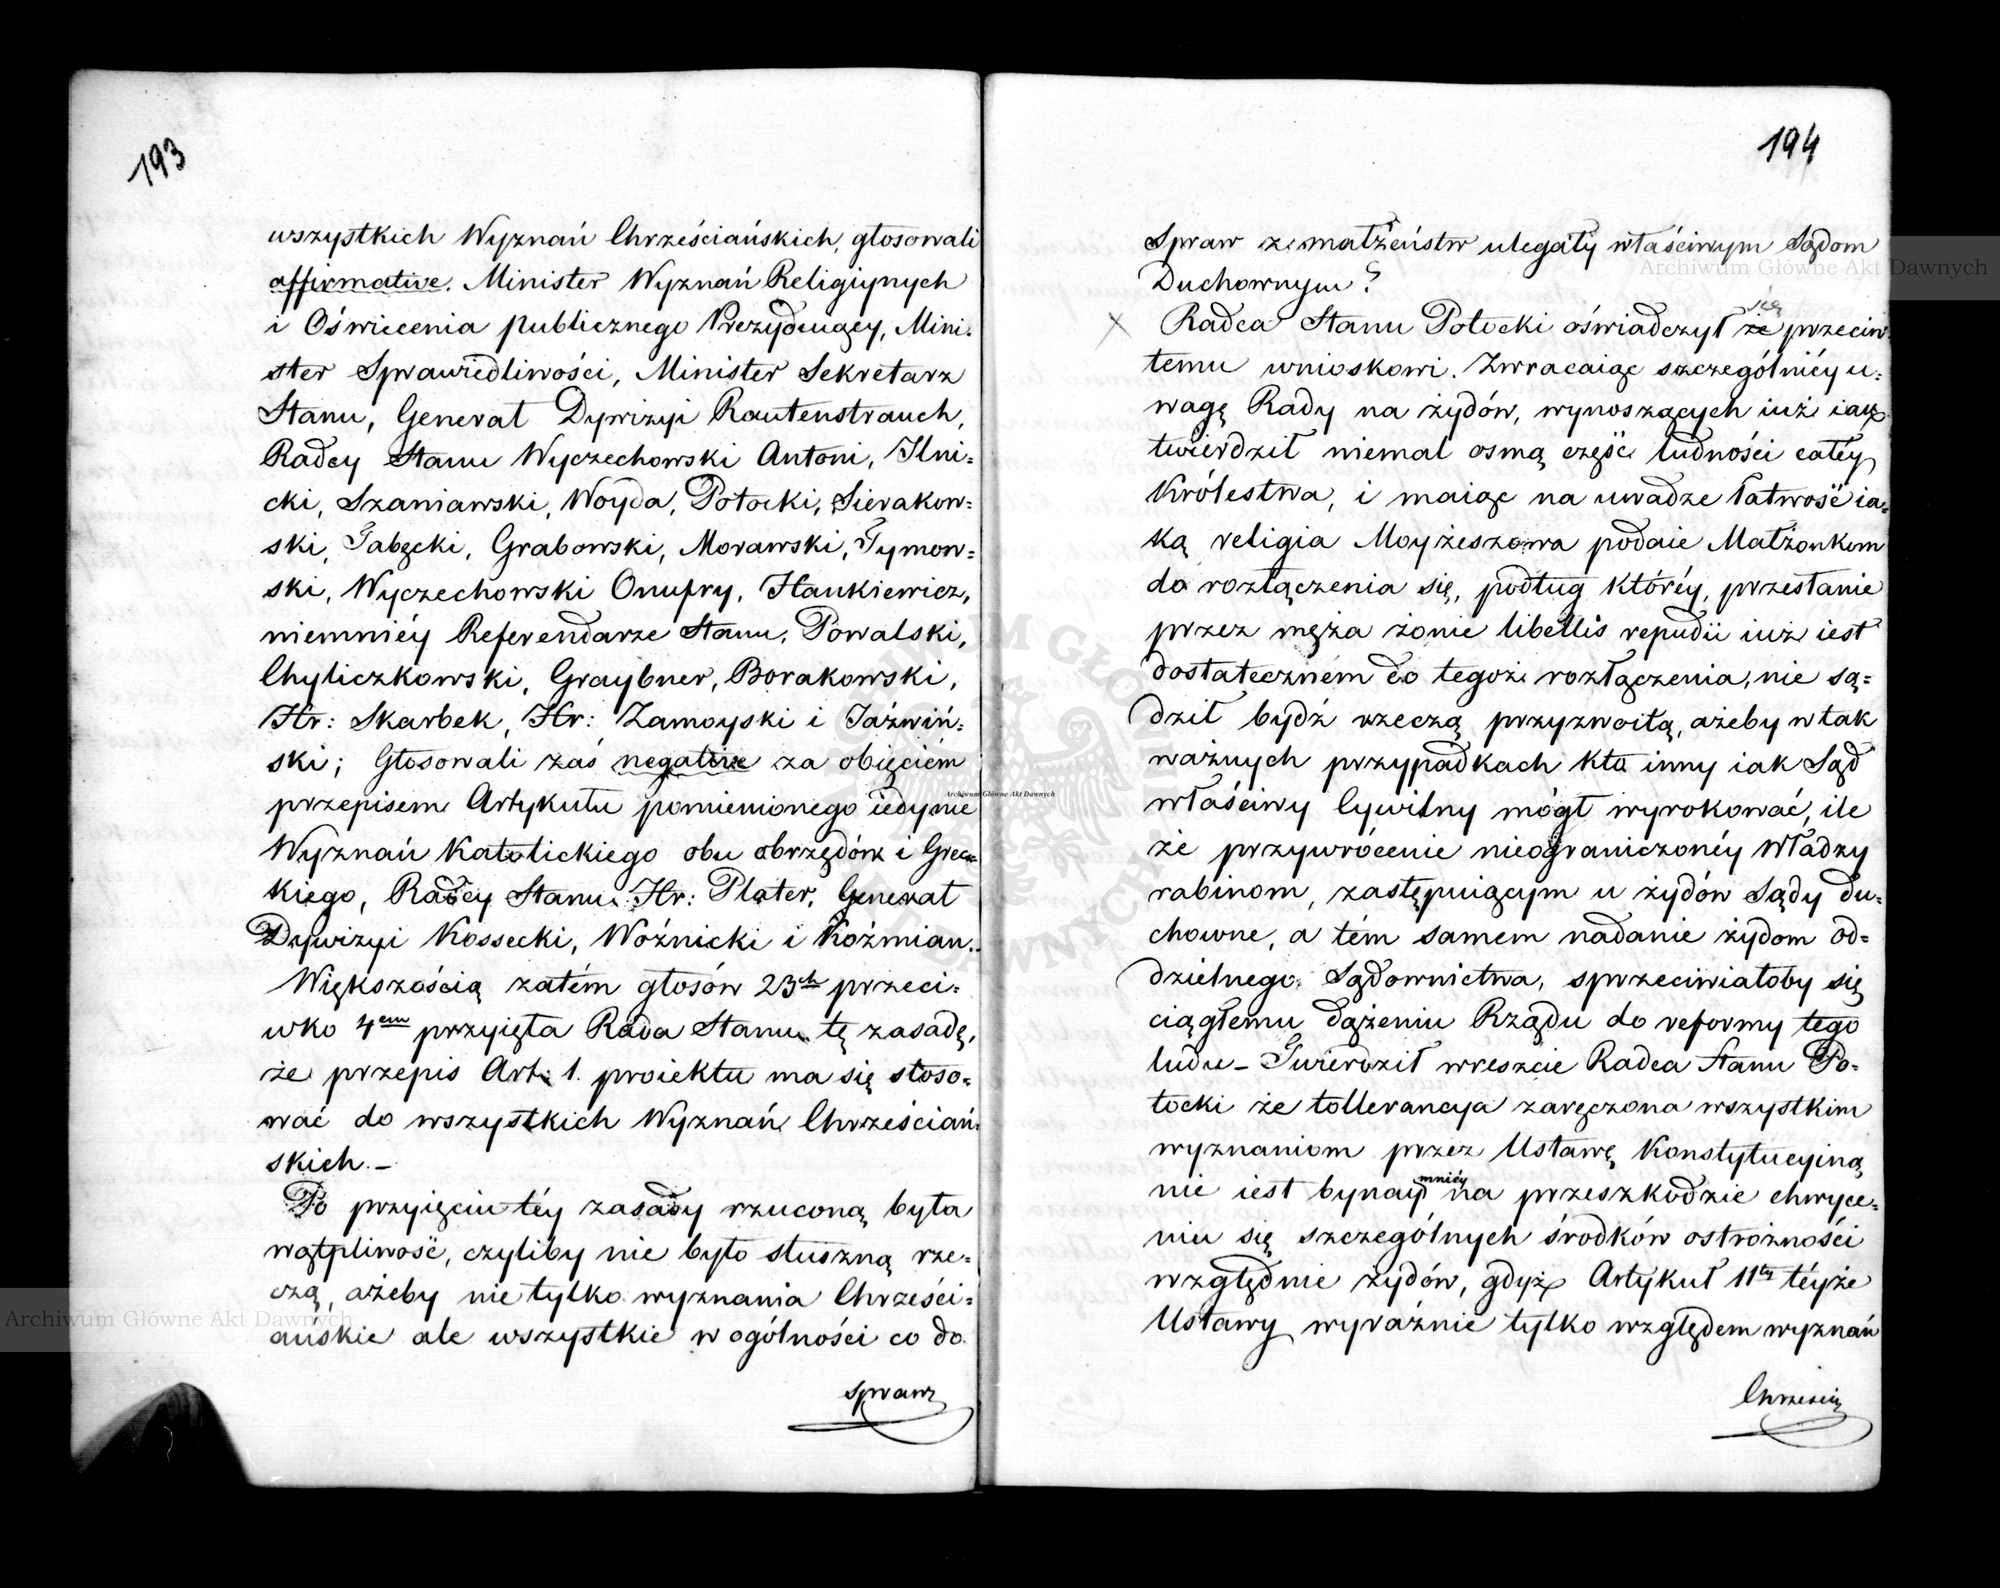 193
wszystkich Wyznań Chrześciańskich, głosowali
affirmative. Minister Wyznań Religiynych
i Oświecenia publicznego Prezyduiący, Mini-
ster Sprawiedliwości, Minister Sekretarz
Stanu, Generał Dywizyi Rautenstrauch,
Radcy Stanu Wyczechowski Antoni, Ilni=
cki, Szaniawski, Woyda, Potocki, Sierakow=
ski, Tabęcki, Grabowski, Morawski, Tymow=
ski, Wyczechowski Onufry, Hankiewicz,
niemniéy Referendarze Stanu, Powalski,
Chyliczkowski, Graybner, Borakowski,
Hr: Skarbek, Hr: Zamoyski i Jaźwiń=
ski; Głosowali zaś negative za obięciém
przepisem Artykułu pomienionego iedynie
Wyznań Katolickiego obu obrzędów i Grec=
kiego, Radcy Stanu Hr: Plater, Generał
Dywizyi Kossecki, Woźnicki i Koźmian.
Większością zatém głosów 23ch przeci=
wko 4em przyięta Rada Stanu tę zasadę,
że przepis Art: 1. proiektu ma się stoso=
wać do wszystkich Wyznań Chrześciań=
skich.—
Po przyięciu téy zasady rzuconą była
wątpliwość, czyliby nie było słuszną rze=
czą, ażeby nie tylko wyznania Chrześci=
ańskie ale wszystkie w ogólności co do
spraw
194
Spraw z małżeństw ulegały właściwym Sądom
Duchownym?
Radca Stanu Potocki oświadczył że się przeciw
temu wnioskowi. Zwracaiąc szczególniéy u=
wagę Rady na żydów, wynoszących iuż iak
twierdził niemal osmą część ludności całéy
Królestwa, i maiąc na uwadze łatwość ia=
ką religia Moyżeszowa podaie Małżonkom
do rozłączenia się, podług któréy, przesłanie
przez męża żonie libellis repudii iuż iest
dostateczném do tegoż rozłączenia, nie są=
dził bydź rzeczą przyzwoitą, ażeby w tak
ważnych przypadkach kto inny iak Sąd
właściwy Cywilny mógł wyrokować, ile
że przywrócenie nieograniczonéy Władzy
rabinom, zastępuiącym u żydów Sądy du=
chowne, a tém samem nadanie żydom od=
dzielnego Sądownictwa, sprzeciwiałoby się
ciągłemu dążeniu Rządu do reformy tego
ludu — Twierdził wreszcie Radca Stanu Po=
tocki że tollerancya zaręczona wszystkim
wyznaniom przez Ustawę Konstytucyiną
nie iest bynaymniéy na przeszkodzie chwyce=
niu się szczególnych środków ostrożności
względnie żydów, gdyż Artykuł 11ty téyże
Ustawy wyraźnie tylko względem wyznań
Chrześcia
Archiwum Główne Akt Dawnych
Archiwum Główne Akt Dawnych
Archiwum Główne Akt Dawnych